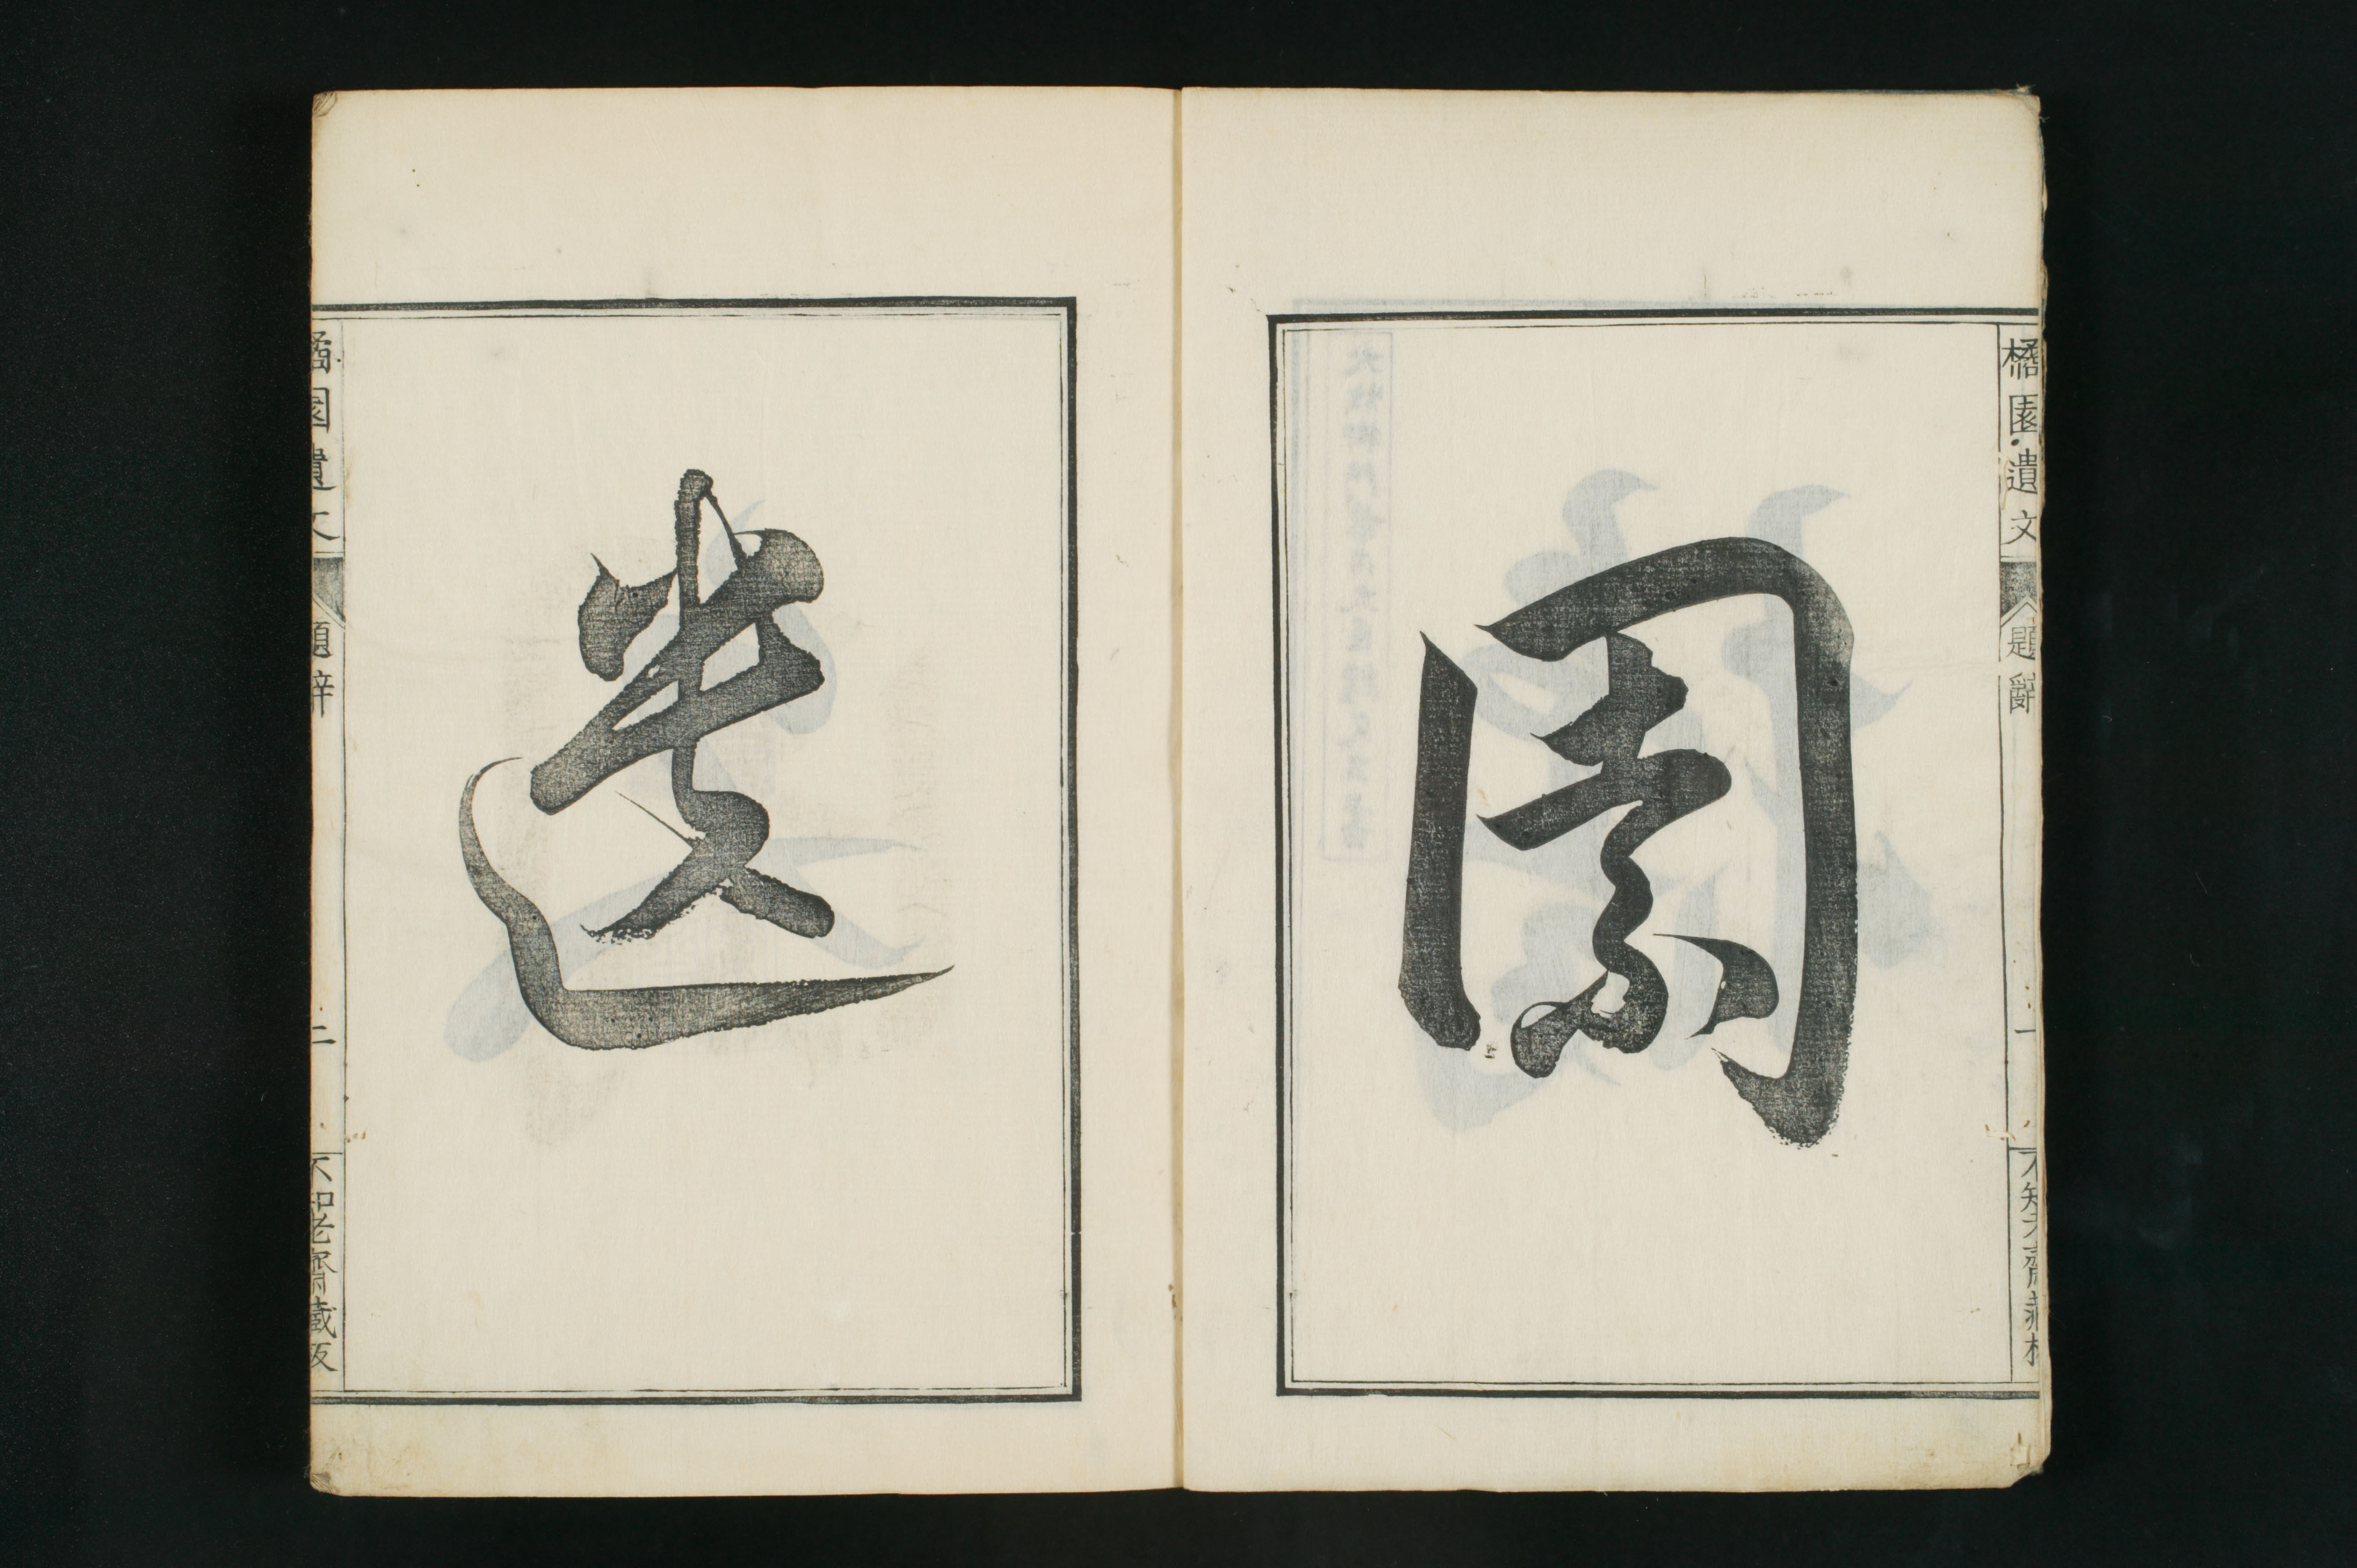 橘園遺文
題辭
一
不知老齋藏板
園
遺
橘園遺文
題辭
二
不知老齋藏板